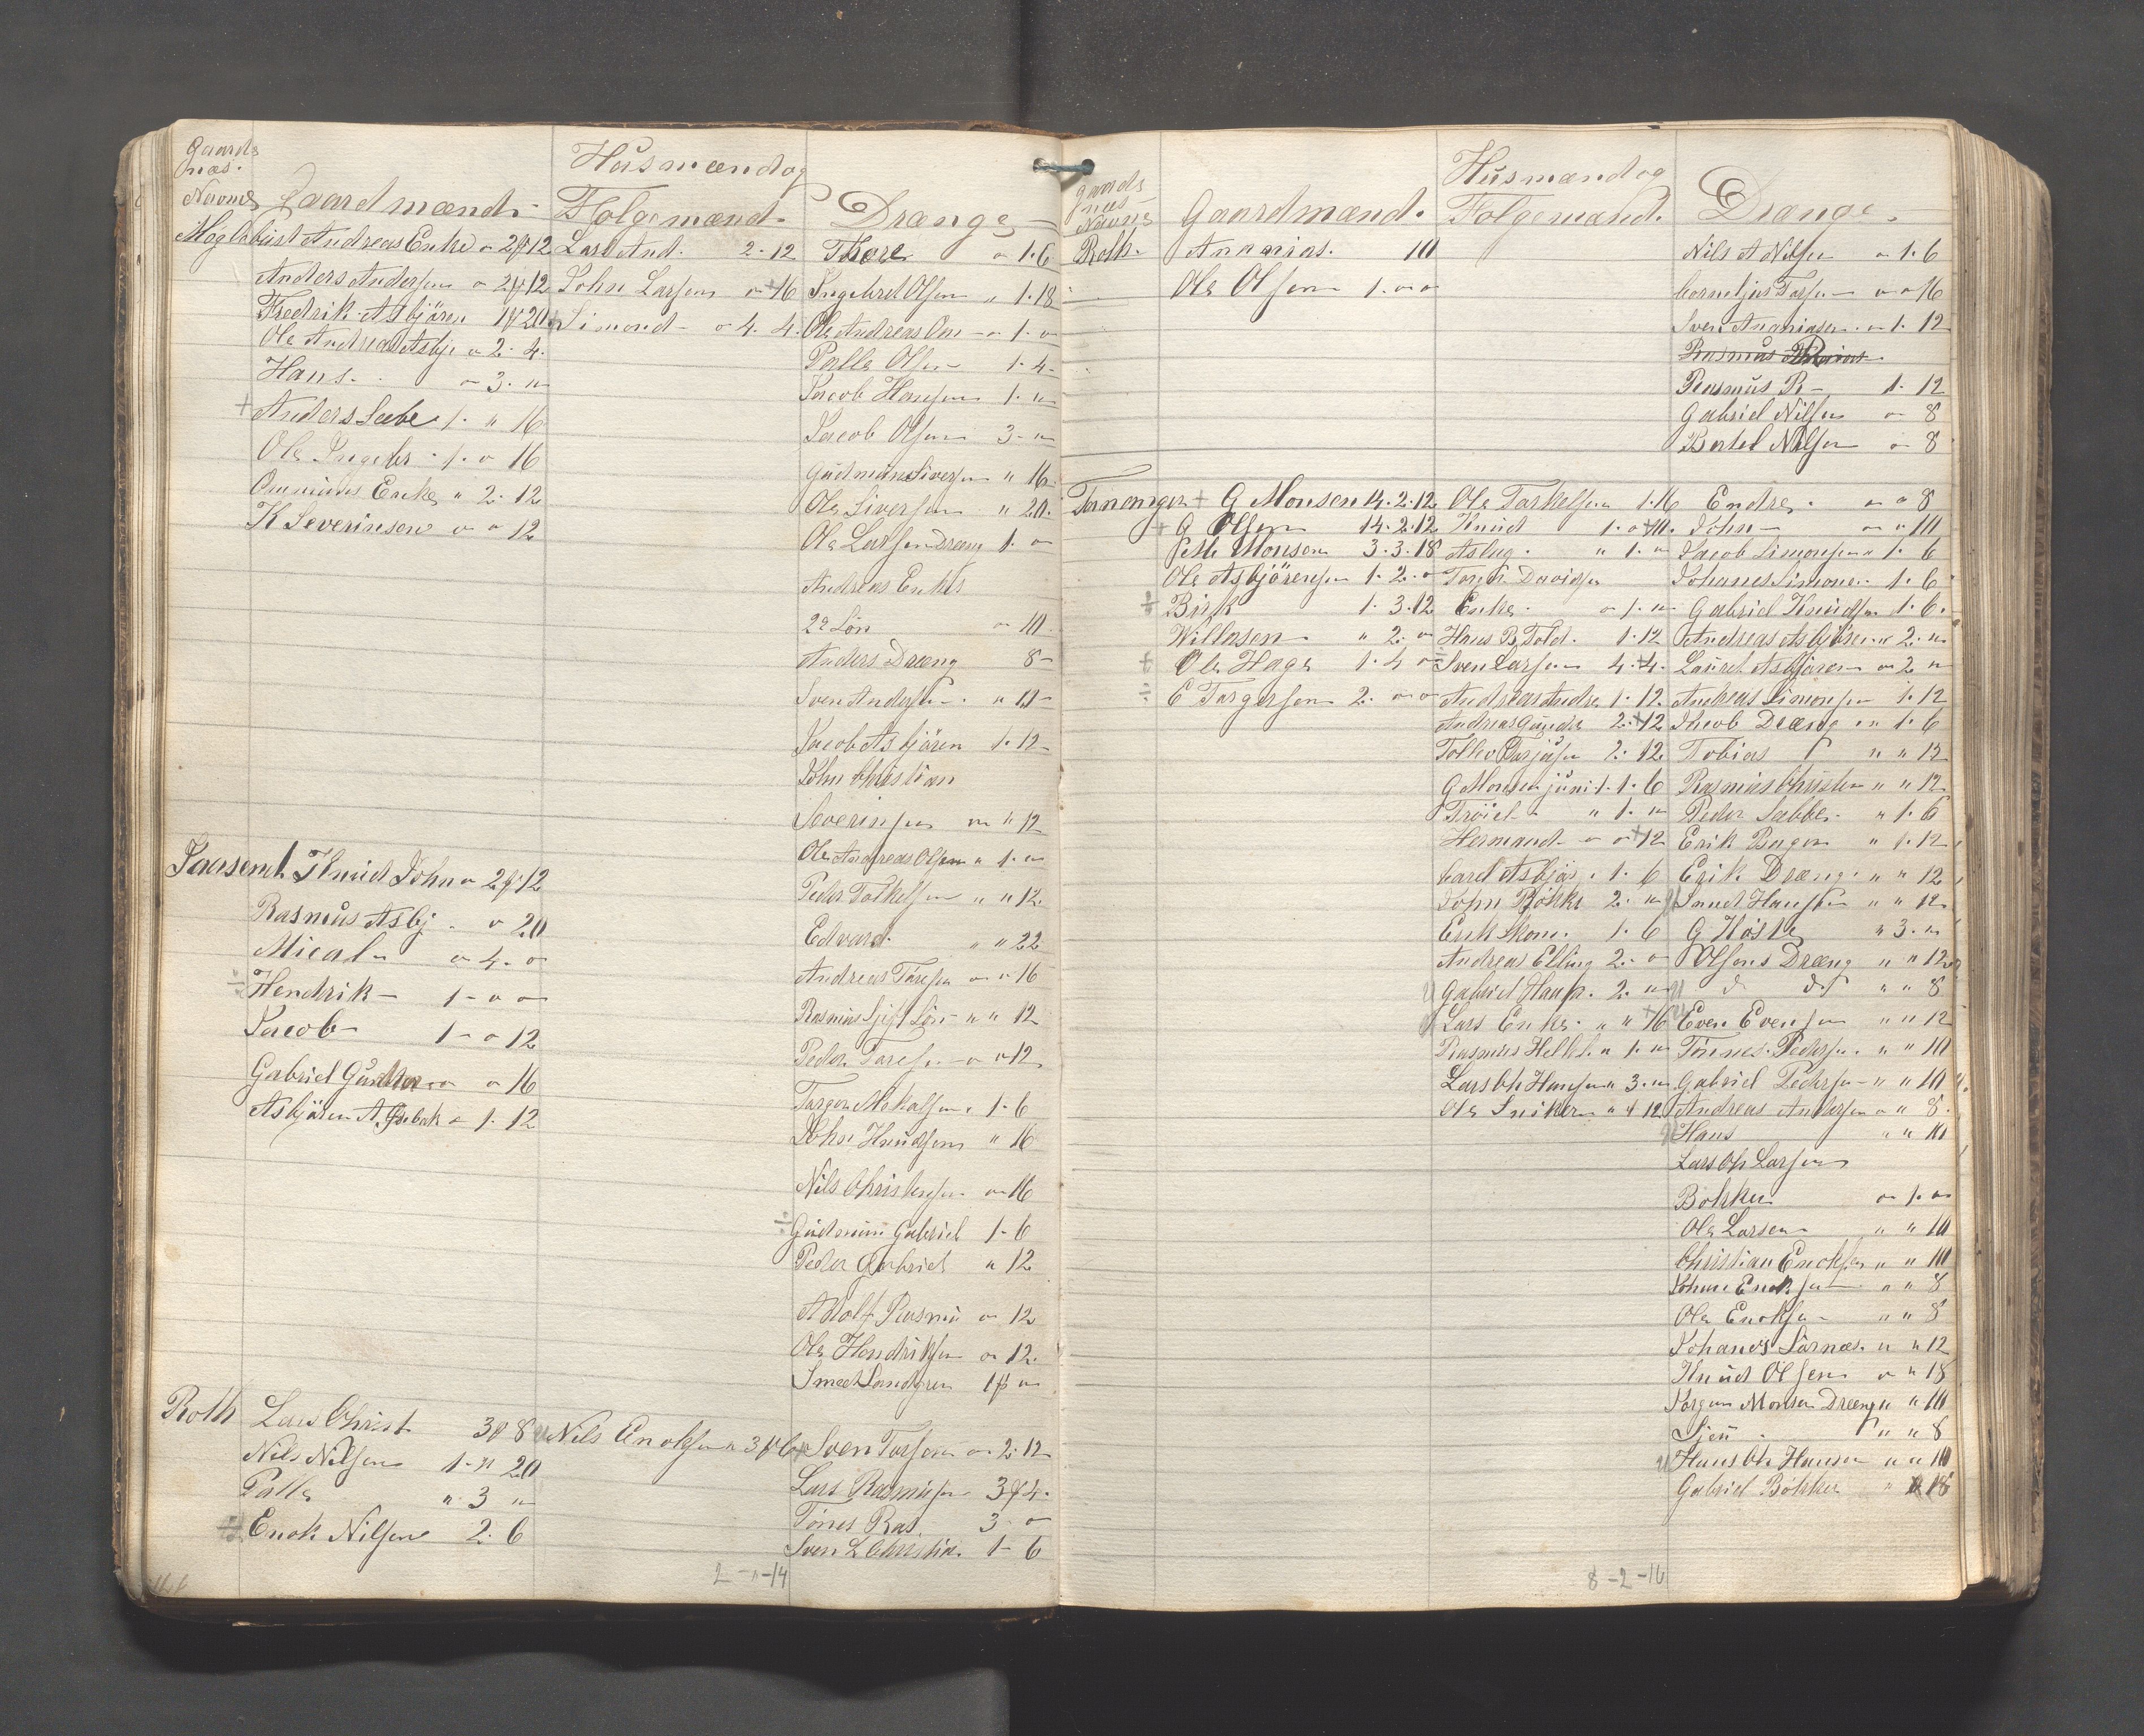 Gaards
Navne Gaardmænd. Husmænd og
Folgemænd. Drænge.
Andreas Enke " 2 12 Lars And. 2. 12 Thore " 1. 6
Anders Andersen " 2 12 John Larsen " 16 Ingebret Olsen " 1. 18
Fredrik Asbjören 1 20 Simond " 4. 4. Ole Andreas " 1. "
Ole Andreas Asbj " 2. 4. Palle Olsen 1. 4.
Hans " 3. " Jacob Hansen 1. "
+ Anders Sæbe 1. " 16 Jacob Olsen 3. "
Ole Ingebr 1. " 16 Gudmun Siversen " 16
Enke " 2. 12 Ole Siversen " 20.
K Severinsen " " 12 Ole Larsen Dræng 1. "
Andreas Enkes
2 Sön " 10
Anders Dræng 8
Sven Andersen " 10
Jacob Asbjören 1. 12
John Christian
Severinsen " " 12
Knud John " 2 12 Ole Andreas Olsen " 1. "
Rasmus Asbj. " 20 Peder Tolkelsen " " 12.
Mical " 4. " Edvard. " " 22
÷ Hendrik 1 " " Andreas Taresen " " 16
Jacob 1 " 12 Rasmus Sön " " 12
Gabriel " " 16 Peder Taresen " " 12
Asbjören A. " 1. 12 Targer Mikalsen. 1. 6
John Knudsen " 16
Nils Christensen " 16
÷ Gudmun Gabriel 1. 6
Peder Gabriel " 12
Adolf Rasmu " 12
Ole Hendriksen " 12.
Smed Landgren 1 "
Roth Lars Christ 3 8 Nils Enoksen " 3 6 Sven Tarsen " 2. 12
Nils Nilsen 1 " 20 Lars Rasmusen 3 4.
Palle " 3 " Tönes Ras. 3 "
÷ Enok Nilsen 2. 6 Sven L Christian 1 6
2 - " - 14
Gaards
Navne Gaardmænd. Husmænd og
Folgemænd. Drænge.
Roth. Ananias. 10 Nils A Nilsen " 1. 6
Ole Olsen 1. " " Corneljus Tarsen " " 16
Sven Ananiasen. " 1. 12
Rasmus
Rasmus R 1. 12
Gabriel Nilsen " 8
Bertel Nilsen " 8
Tananger + G Monsen 14. 2. 12 Ole Tarkelsen 1. 16 Endre. " " 8
+ G Olsen 14. 2. 12 Knud 1. " 10. John " " 10
Pette Monsen 3. 3. 18 Aslag. " 1. " Jacob Simonsen " 1. 6
Ole Asbjörensen 1. 2. " Davidsen Johanes Simons. 1. 6
÷ Birk 1. 3. 12 Enke. " 1. " Gabriel Knudsen 1. 6.
Willasen " 2. " Hans B Told. 1. 12 Andreas Asbjören " 2. "
+ Ole Hage 1. 4 " ÷ Sven Larsen 4. 4. Laurel Asbjören " 2 "
÷ E Targersen 2. " " Andreas Andre 1. 12. Andreas Simonsen 1. 12
Andreas Gunder 2. 12 Jacob Dræng " 1. 6
Tollev 2. 12. Tobias " " 12
G Monsen juni 1. 1. 6 Rasmus Christen " " 12
" 1. " Peder Sæbbe. " 1. 6
Hermand " " 12 Erik Bager " 1. 12
Carel Asbjör. 1. 6 Erik Dræng. " " 12
John Bökke 2. " Hansen " " 12
Erik Skom. 1. 6 G Höste " 3. "
Andreas Elling 2. " Olsens Dræng " " 12
Gabriel Hans. 2. " d " " 8
Lars Enke. " " 16 Even Evensen " " 12
Rasmus " 1. " Tönnes Pedersen. " " 10
Lars Ch Hansen " 3. " Gabriel Pedersen " " 10
Ole Sniker " 4 12 Andreas Andersen " " 8.
Hans " " 10
Lars Ch Larsen
Bökker " 1. "
Ole Larsen " " 10
Christian Enoksen " " 10
Johan Enoksen " " 8
Ole Enoksen " " 8
Johanes Sörnæs. " " 12
Knud Olsen " " 18
Jörgen Monsen Dræng " " 10
" " 8
Hans Ch Hansen " " 10
Gabriel Bökker " 18
8 - 2 - 16